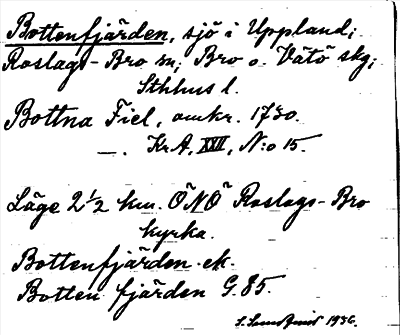 Bottenfjärden, sjö i Uppland;
Roslags-Bro sn; Bro o. Vätö skg;
Sthlms l.
Bottna Fiel, omkr. 1730.
—. Kr. A, XXII, N:o 15.
Läge 2 1/2 km. ÖNÖ Roslags-Bro
kyrka.
Bottenfjärden ek.
Botten fjärden G. 85.
1936.